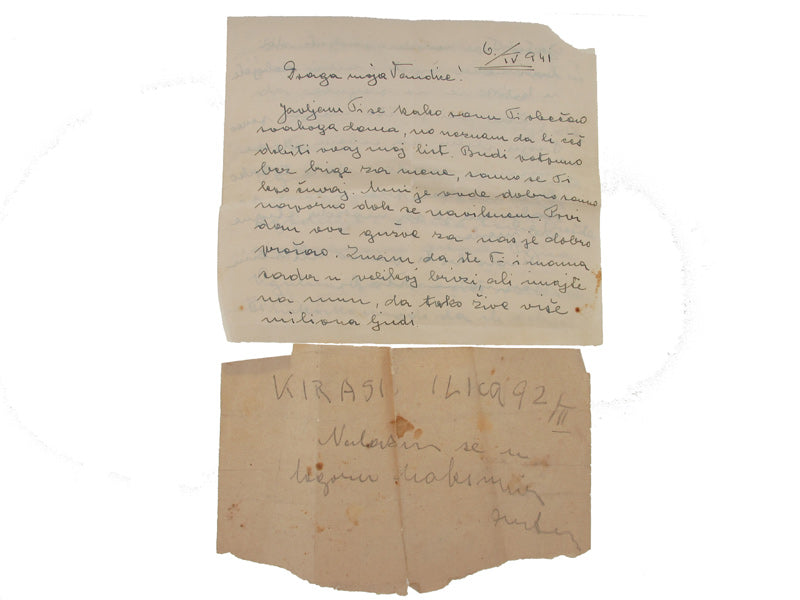 6./IV 941
Draga moja Vandice!
Javljam Ti se kako sam Ti obećao
svakoga dana, no neznam da li ćeš
dobiti ovaj moj list. Budi potpuno
bez brige za mene, samo se Ti
čuvaj. Meni je ovde dobro samo
naporno dok se naviknem. Prvi
dan ove gužve za nas je dobro
prošao. Znam da ste Ti i mama
sada u velikoj brizi, ali imajte
na umu, da tako živi više
miliona ljudi.
KIRASI ILICA 92
III
Nalazim se u
logoru Maksimir